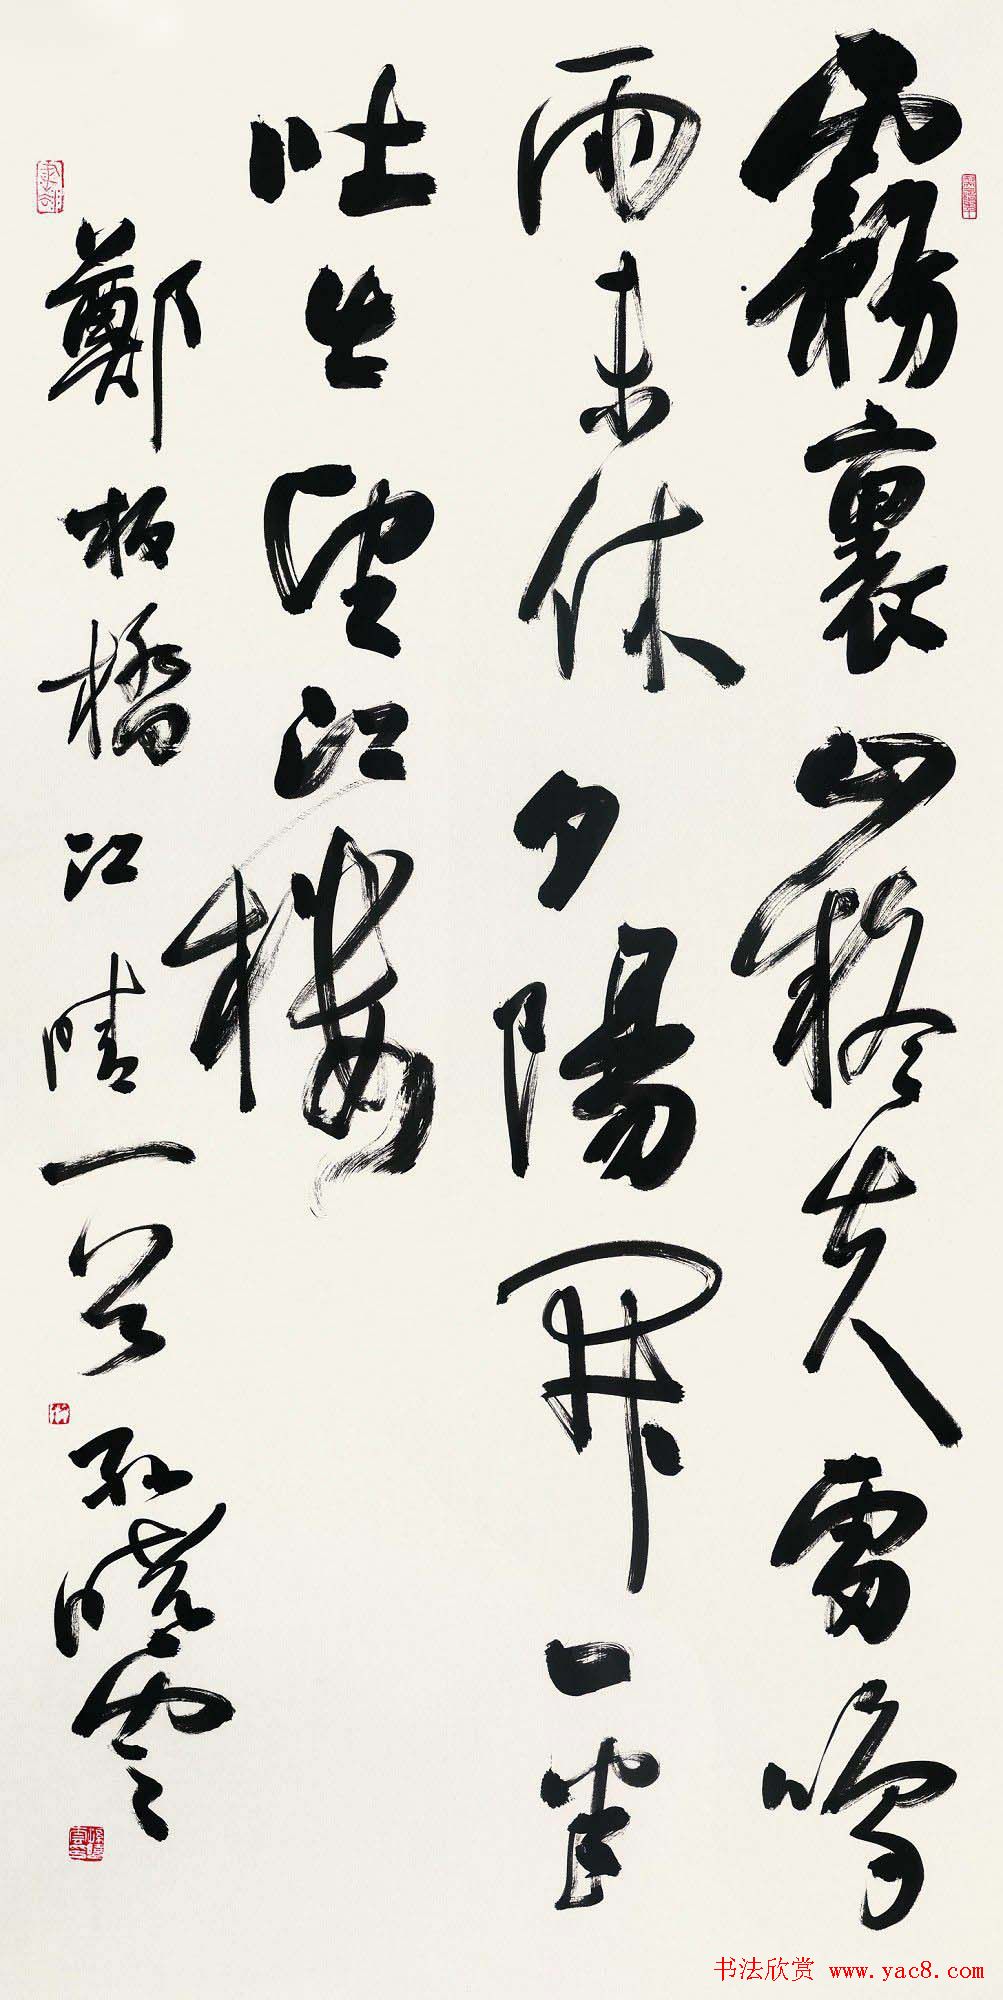 霧裏山疑失雷鳴
雨未休夕陽開一半
吐出望江樓
鄭板橋江晴一首 孫曉雲
书法欣赏 www.yac8.com